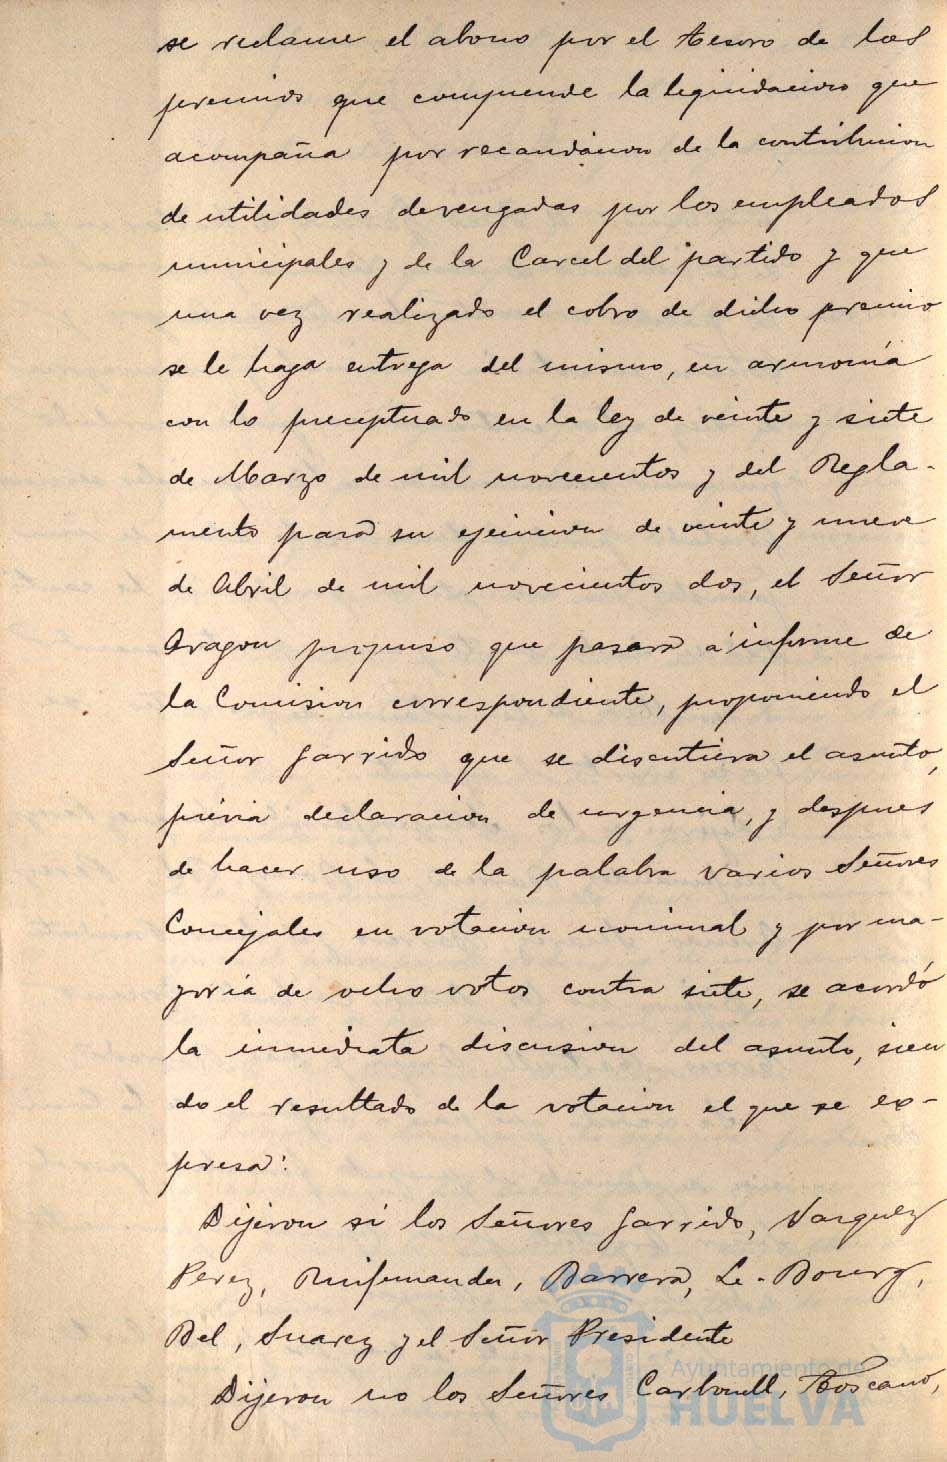 se reclame el abono por el Tesoro de los
premios que comprende la liquidacion que
acompaña por recaudacion de la contribucion
de utilidades devengadas por los empleados
municipales y de la Carcel del partido y que
una vez realizado el cobro de dicho premio
se le haga entrega del mismo, en armonía
con lo preceptuado en la ley de veinte y siete
de Marzo de mil novecientos y del Regla-
mento para su ejecucion de veinte y nueve
de Abril de mil novecientos dos, el Señor
Aragon propuso que pasara á informe de
la Comision correspondiente, proponiendo el
Señor Garrido que se discutiera el asunto,
prévia declaracion de urgencia, y despues
de hacer uso de la palabra varios Señores
Concejales en votacion nominal y por ma-
yoria de ocho votos contra siete, se acordó
la inmediata discusion del asunto, sien
do el resultado de la votacion el que se ex-
presa:
Dijeron si los Señores Garrido, Vazquez
Perez, Ruifernandez, Barrera, Le-Bourg,
Bel, Suarez y el Señor Presidente
Dijeron no los Señores Carbonell, Toscano,
Ayuntamiento de
HUELVA